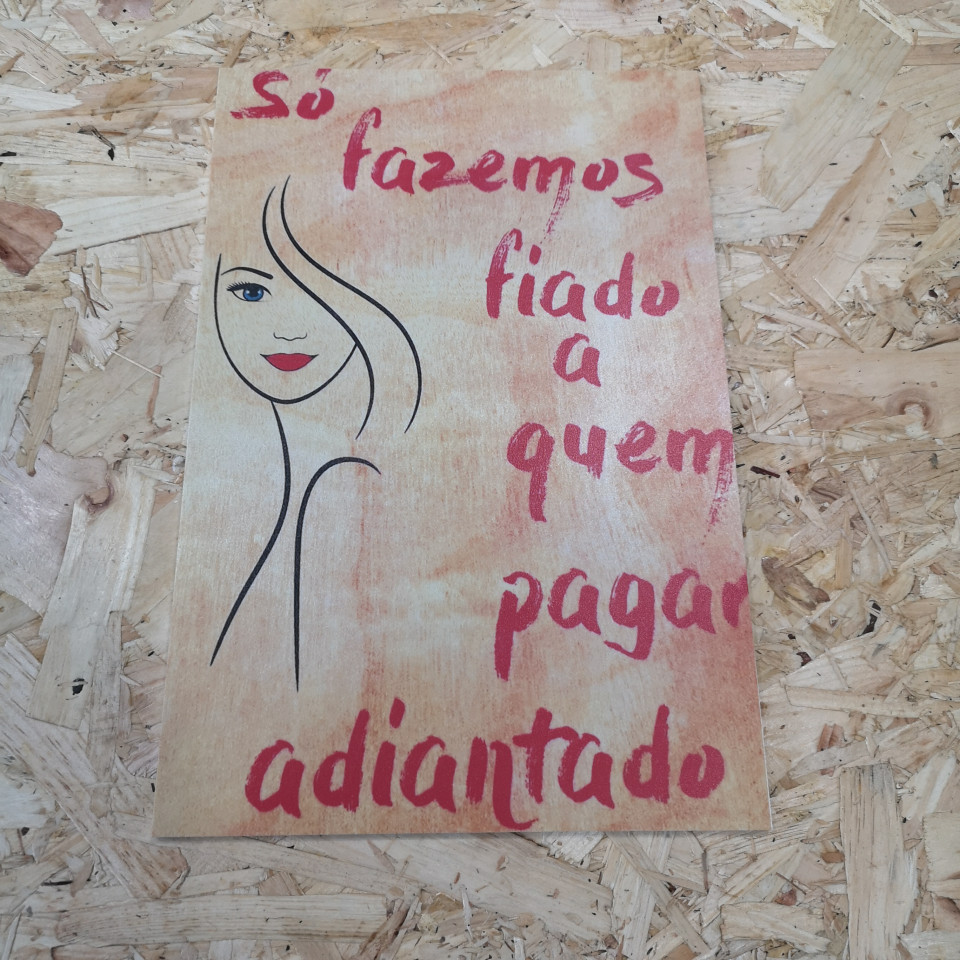 Só
fazemos
fiado
a
quem
pagar
adiantado